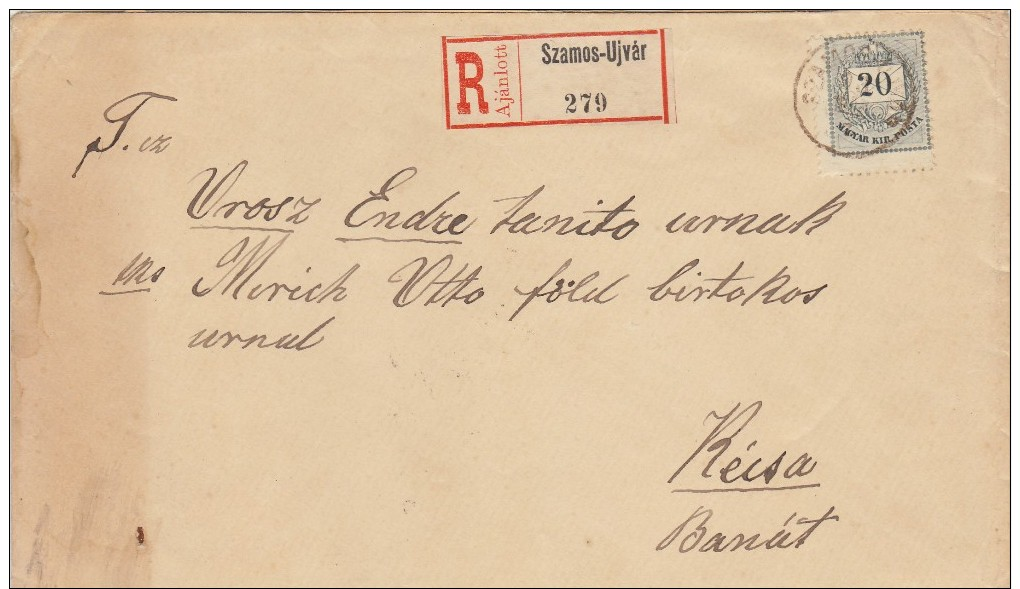 R Ajánlott
Szamos-Ujvár
279
SZAMOS
20
MAGYAR KIR. POSTA
T. cz
Orosz Endre tanito urnak
tks Morich Otto föld birtokos
urnál
Kécsa
Banát